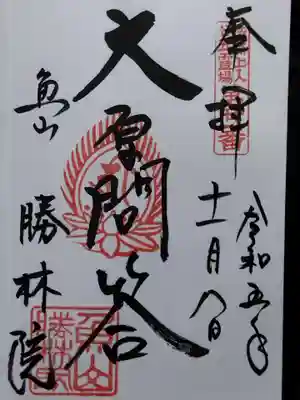 奉拝
令和五年
十一月八日
大原問答
魚山
勝林院